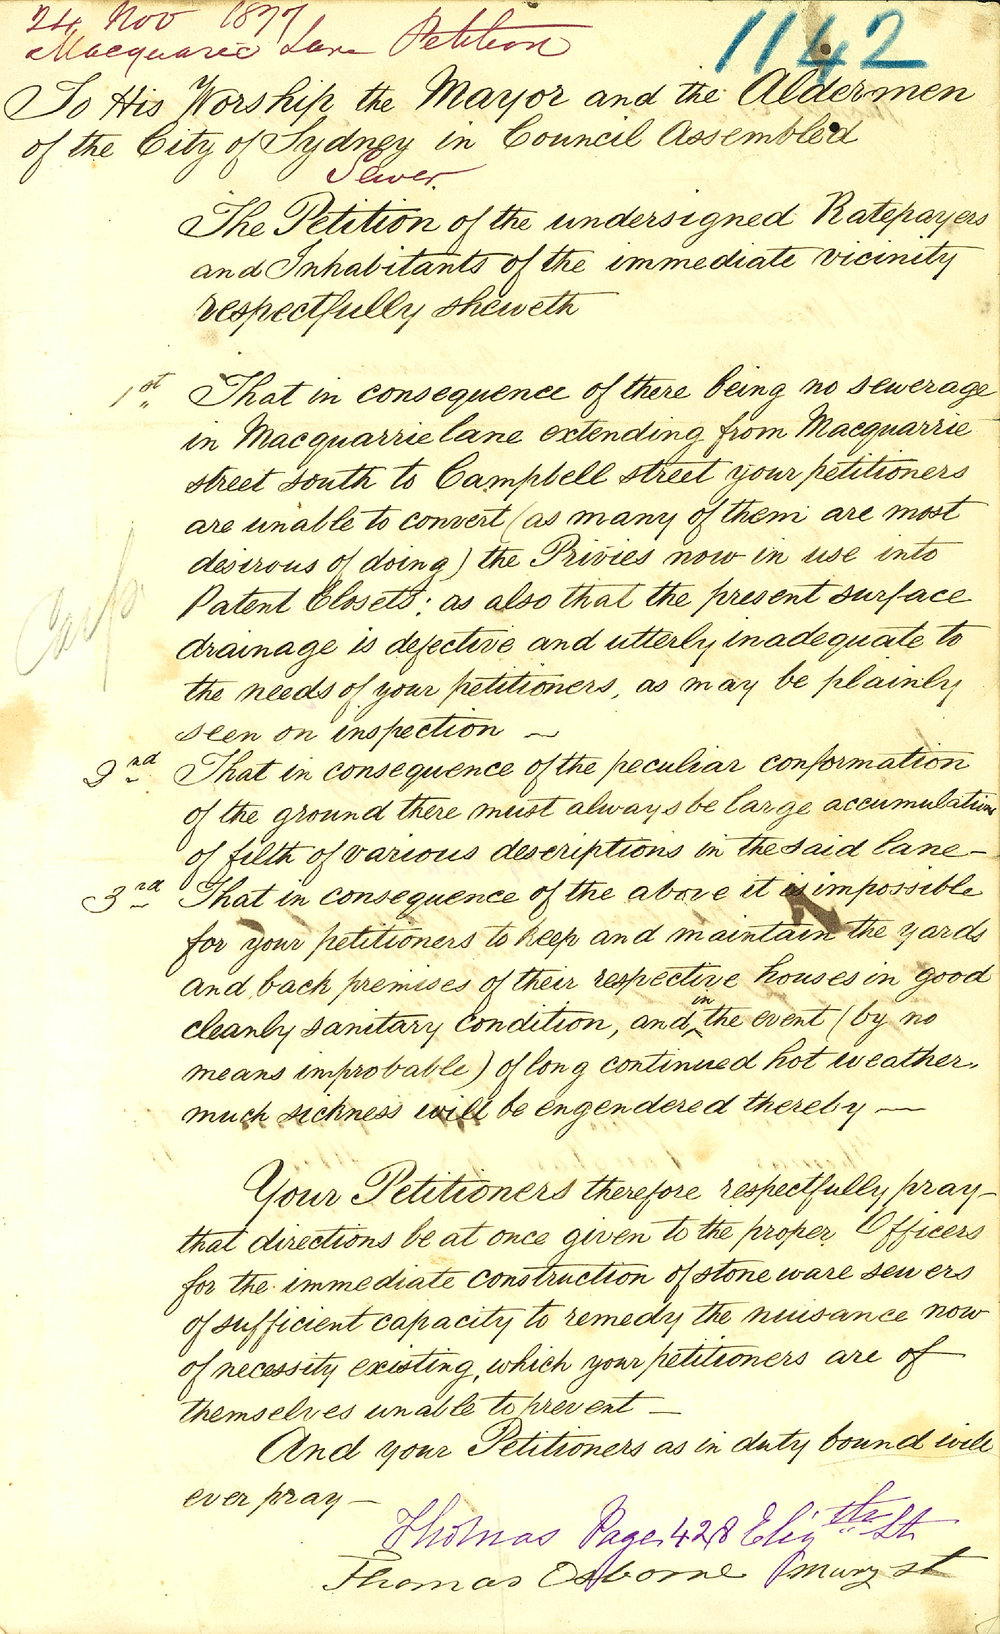 24 Nov 1877
Macquarie Lane Petition
1142
To His Worship the Mayor and the Aldermen
of the City of Sydney in Council Assembled
Sewer
The Petition of the undersigned Ratepayers
and Inhabitants of the immediate vicinity
respectfully sheweth
1st. That in consequence of there being no sewerage
in Macquarrie lane extending from Macquarrie
street south to Campbell street your petitioners
are unable to convert (as many of them are most
desirous of doing) the Privies now in use into
Patent Closets: as also that the present surface
drainage is defective and utterly inadequate to
the needs of your petitioners, as may be plainly
seen on inspection —
2nd That in consequence of the peculiar conformation
of the ground there must always be large accumulations
of filth of various descriptions in the said lane —
3rd That in consequence of the above it is impossible
for your petitioners to keep and maintain the yards
and back premises of their respective houses in good
cleanly sanitary condition, and in the event (by no
means improbable) of long continued hot weather.
much sickness will be engendered thereby —
Your Petitioners therefore respectfully pray —
that directions be at once given to the proper Officers
for the immediate construction of stoneware sewers
of sufficient capacity to remedy the nuisance now
of necessity existing, which your petitioners are of
themselves unable to prevent —
And your Petitioners as in duty bound will
ever pray —
Thomas Page 428 Elizth St
Thomas Osborne Mary st